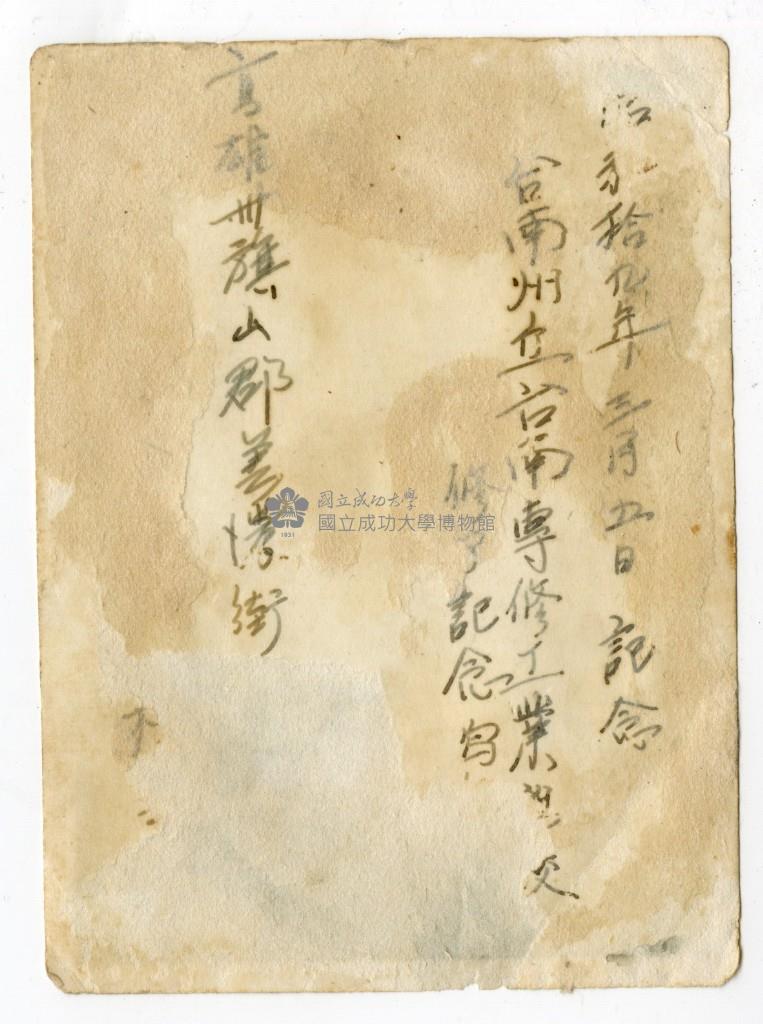 昭和拾九年三月五日 記念
台南州立台南専修工業学校
修了記念写
高雄州旗山郡美濃街
國立成功大學
國立成功大學博物館
1931